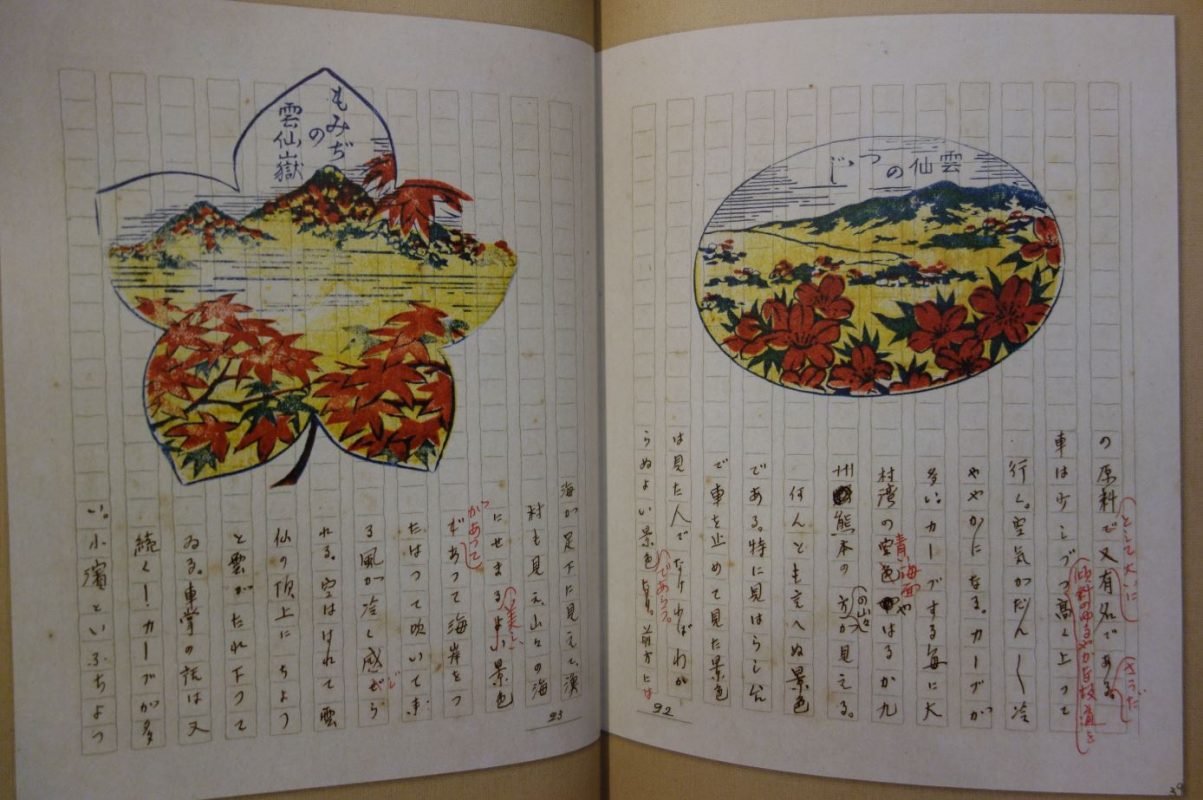 雲仙のつゝじ
の原料で又有名である。
として大いに
さうだ
車は少しづつ高く上って
傾斜のゆるやかな坂道を
行く。空気がだん〱冷
ややかになる。カーブが
多い。カーブする毎に大
村湾の空色はるか九
青い海面や
州熊本の方が見える。
の山々
何んとも言へぬ景色
である。特に見はらし台
で車を止めて見た景色
は見た人でなければわか
らぬよい景色
であらう。
前方には
92
39
もみぢの
雲仙嶽
海が足下に見えて、漁
村も見え山々の海
にせまるよい景色
があって
であって海岸をつ
たはって吹いて来
る風が冷く感ぜら
じ
れる。空ははれて雲
仙の頂上にちよつ
と雲がたれ下って
ゐる。車掌の話は又
続く！カーブが多
い。小濱といふちよつ
93